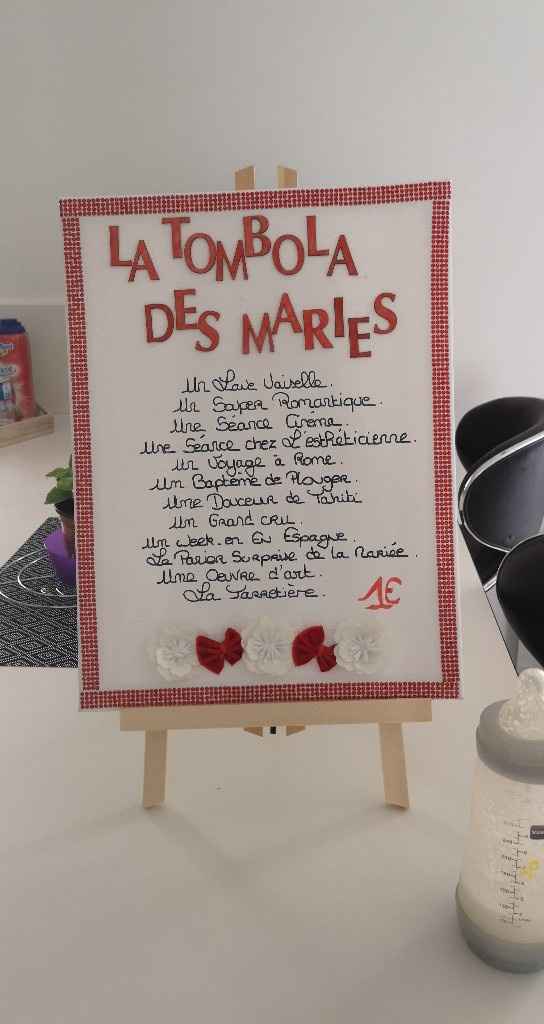 LA TOMBOLA
DES MARIES
Un Lave Vaiselle.
Un Souper Romantique.
Une Séance Cinéma.
Une Séance chez L'esthéticienne.
Un Voyage à Rome.
Un Baptème de Plonger.
Une Douceur de Tahiti
Un Grand cru.
Un week-en En Espagne.
Le Panier Surprise de la Mariée.
Une Oeuvre d'art.
La Jarretière.
1€